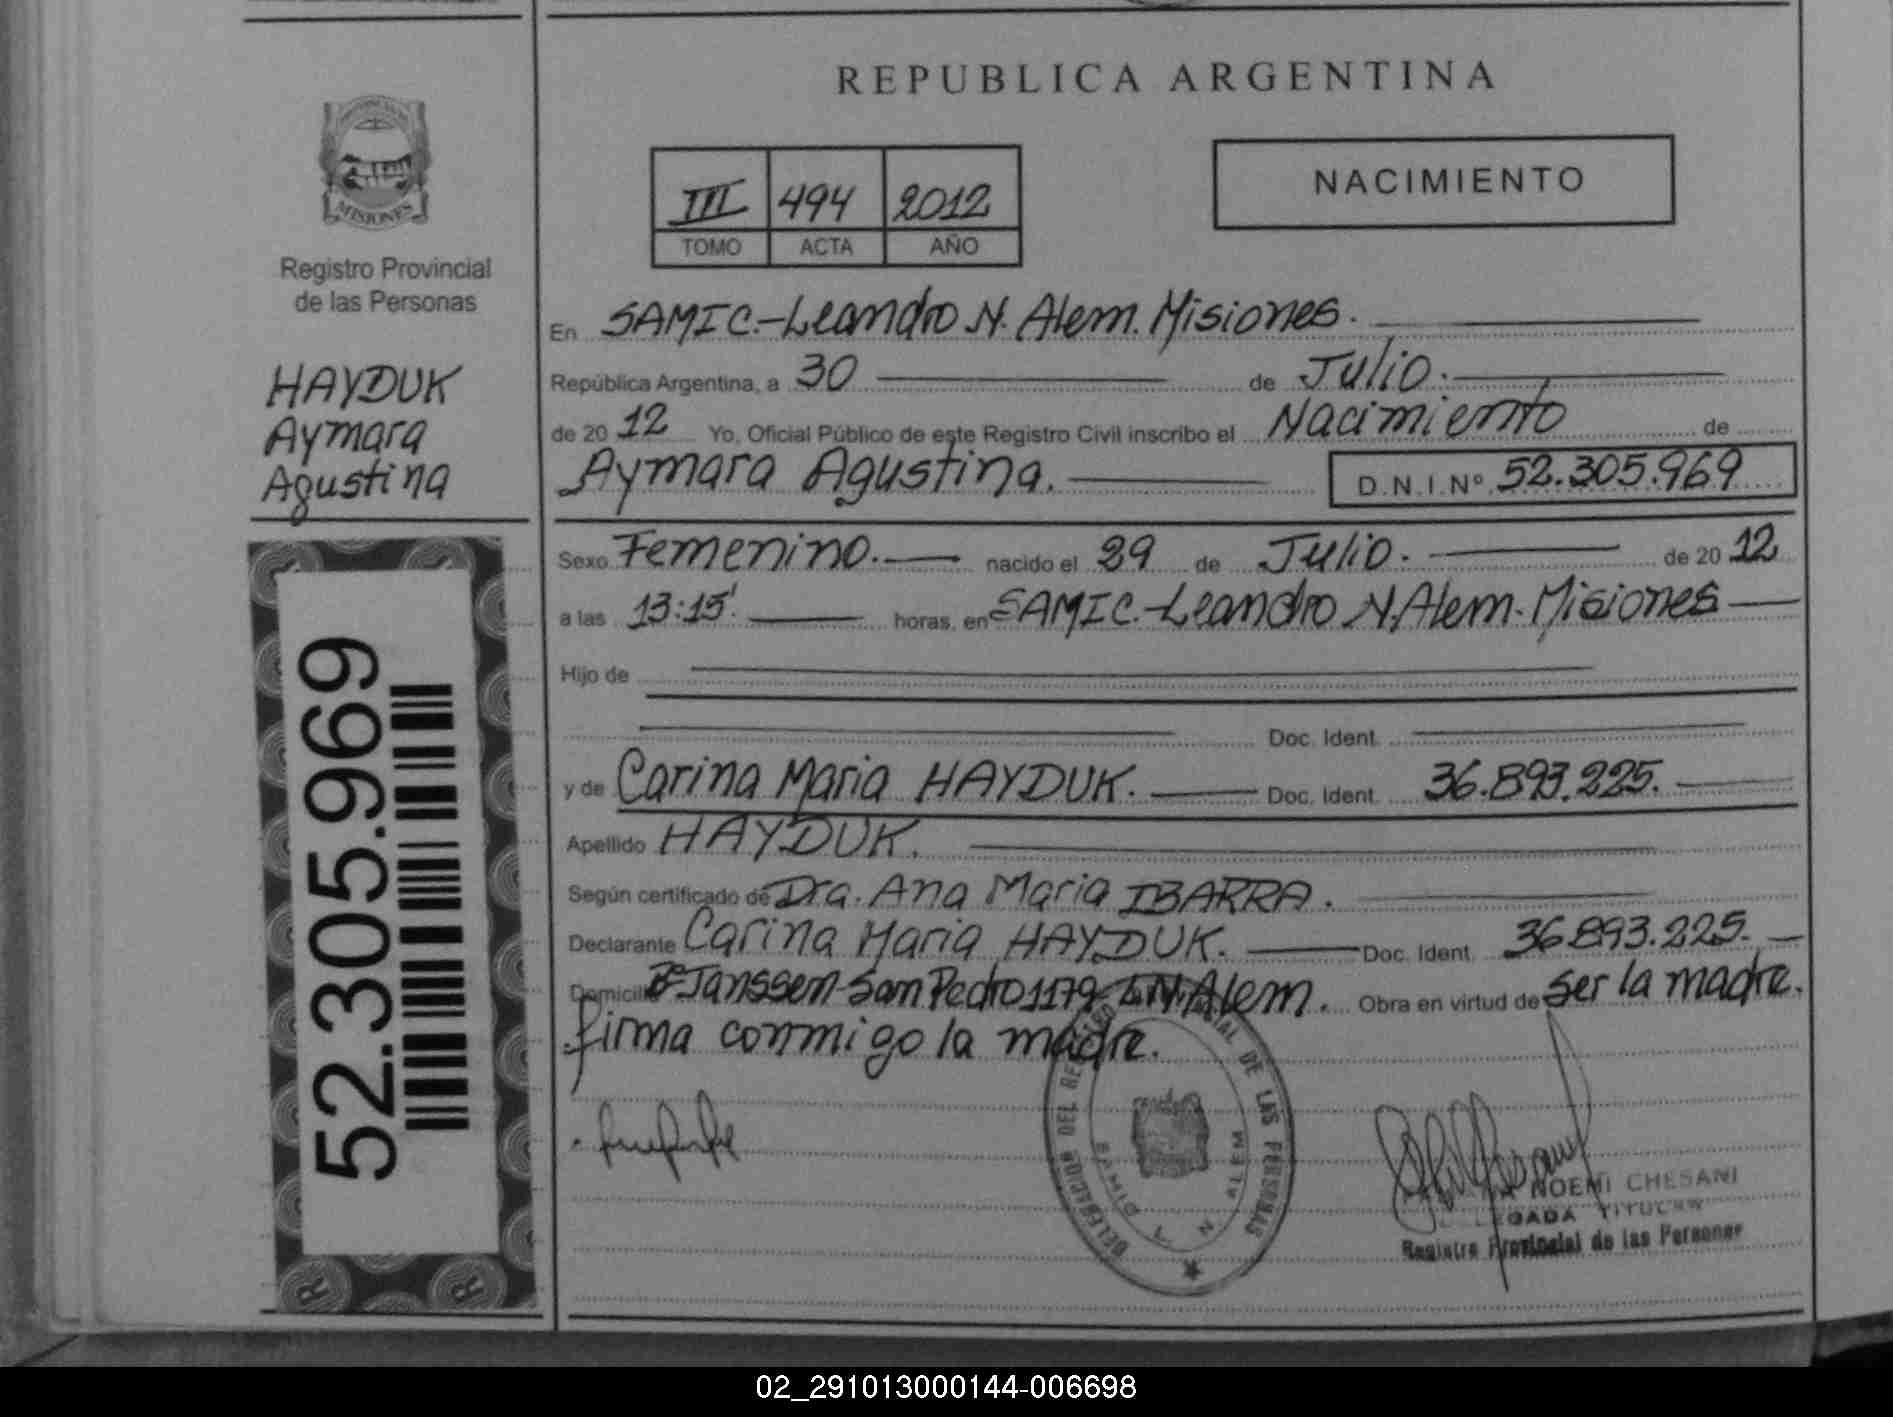 REPUBLICA ARGENTINA
MISIONES
Registro Provincial
de las Personas
HAYDUK
Aymara
Agustina
52.305.969
III 494 2012
TOMO ACTA AÑO
NACIMIENTO
En SAMIC.-Leandro N. Alem. Misiones.
República Argentina, a 30 de Julio.
de 20 12 Yo, Oficial Público de este Registro Civil inscribo el Nacimiento de
Aymara Agustina. D.N.I.Nº 52.305.969
Sexo Femenino. nacido el 29 de Julio. de 20 12
a las 13:15' horas, en SAMIC.-Leandro N. Alem. Misiones
Hijo de
Doc. Ident.
y de Carina Maria HAYDUK. Doc. Ident. 36.893.225.
Apellido HAYDUK.
Según certificado de Dra. Ana Maria IBARRA.
Declarante Carina Maria HAYDUK. Doc. Ident. 36.893.225.
Domicilio Bº Janssen-San Pedro 1179-L.N.Alem. Obra en virtud de ser la madre.
firma conmigo la madre.
DELEGACION DEL REGISTRO PROVINCIAL DE LAS PERSONAS
N ALEM
NOEMI CHESANI
DELEGADA TITULAR
Registro Provincial de las Personas
02_291013000144-006698